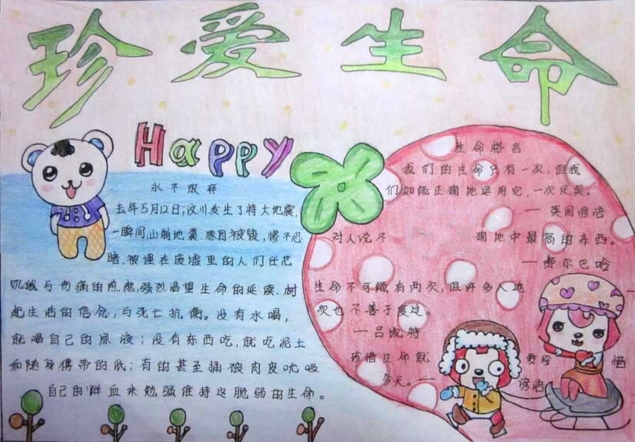 珍爱生命
Happy
永不放弃
去年5月12日,汶川发生了特大地震,
一瞬间,山崩地裂 惨不忍
睹,被埋在废墟里的人们在
饥饿与伤痛的煎熬,强烈渴望生命的延续,树
起生活的信念,与死亡抗衡。没有水喝,
就喝自己的尿液;没有东西吃,就吃泥土
和随身携带的纸;有的甚至 破肉皮 吸
自己的鲜血来勉强维持这脆弱的生命。
生命格言
我们的生命只有一次,但我
们如能正确地运用它,一次足矣。
— 英国谚语
对人说不 确地中最 的东西。
— 费尔巴哈
生命不可能有两次,但许多人连一
次也不善于度过。
— 吕凯特
珍惜生命就 要珍惜
今天。— 谚语